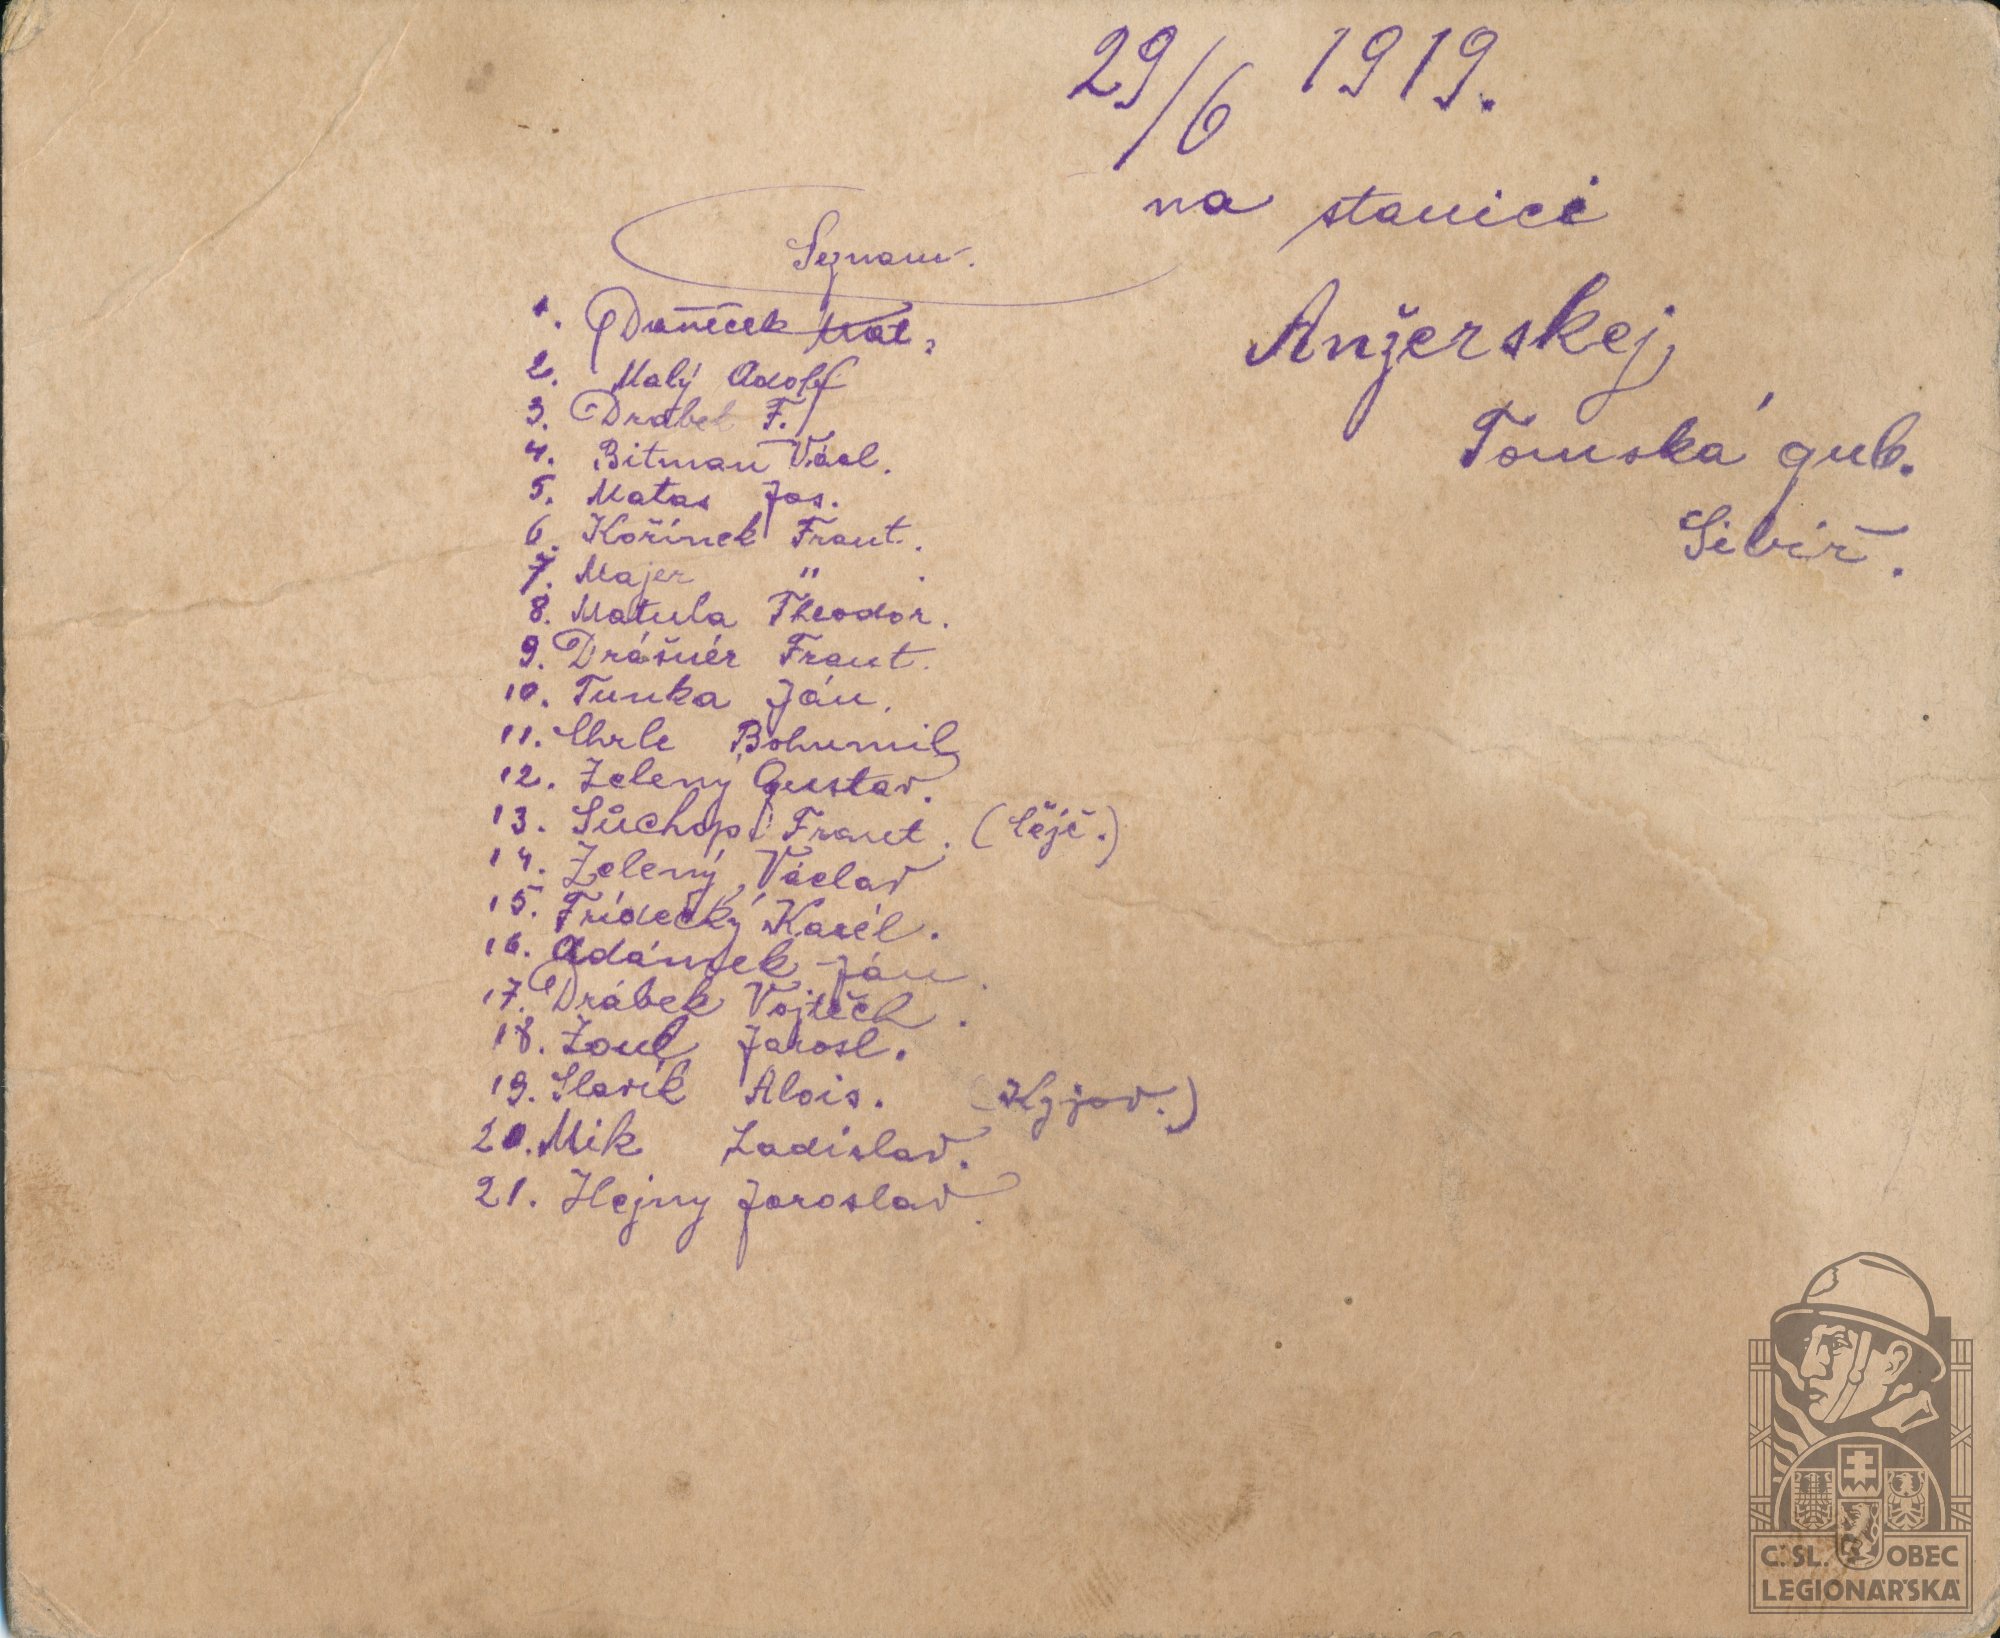 29/6 1919.
na stanici
Anžerskej
Tomská gub.
Sibiř.
Seznam.
1. Daněček
2. Malý Adolf
3. Drabek F.
4. Bitman Václ.
5. Matas Jos.
6. Kořínek Frant.
7. Majer " .
8. Matula Theodor.
9. Drášnér Frant.
10. Tunka Ján.
11. Uhrle Bohumil
12. Zelený Gustav.
13. Sůchop Frant.
14. Zelený Václav
15. Frídecký Karél.
16. Adámek Ján.
17. Drábek Vojtěch.
18. Zoul Jarosl.
19. Slavík Alois. (Kyjov.)
20. Mik Ladislav.
21. Hejny Jaroslav.
Č. SL. OBEC
LEGIONÁŘSKÁ